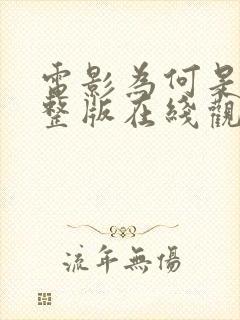 電影為何呆
整版在綫觀
流年無傷